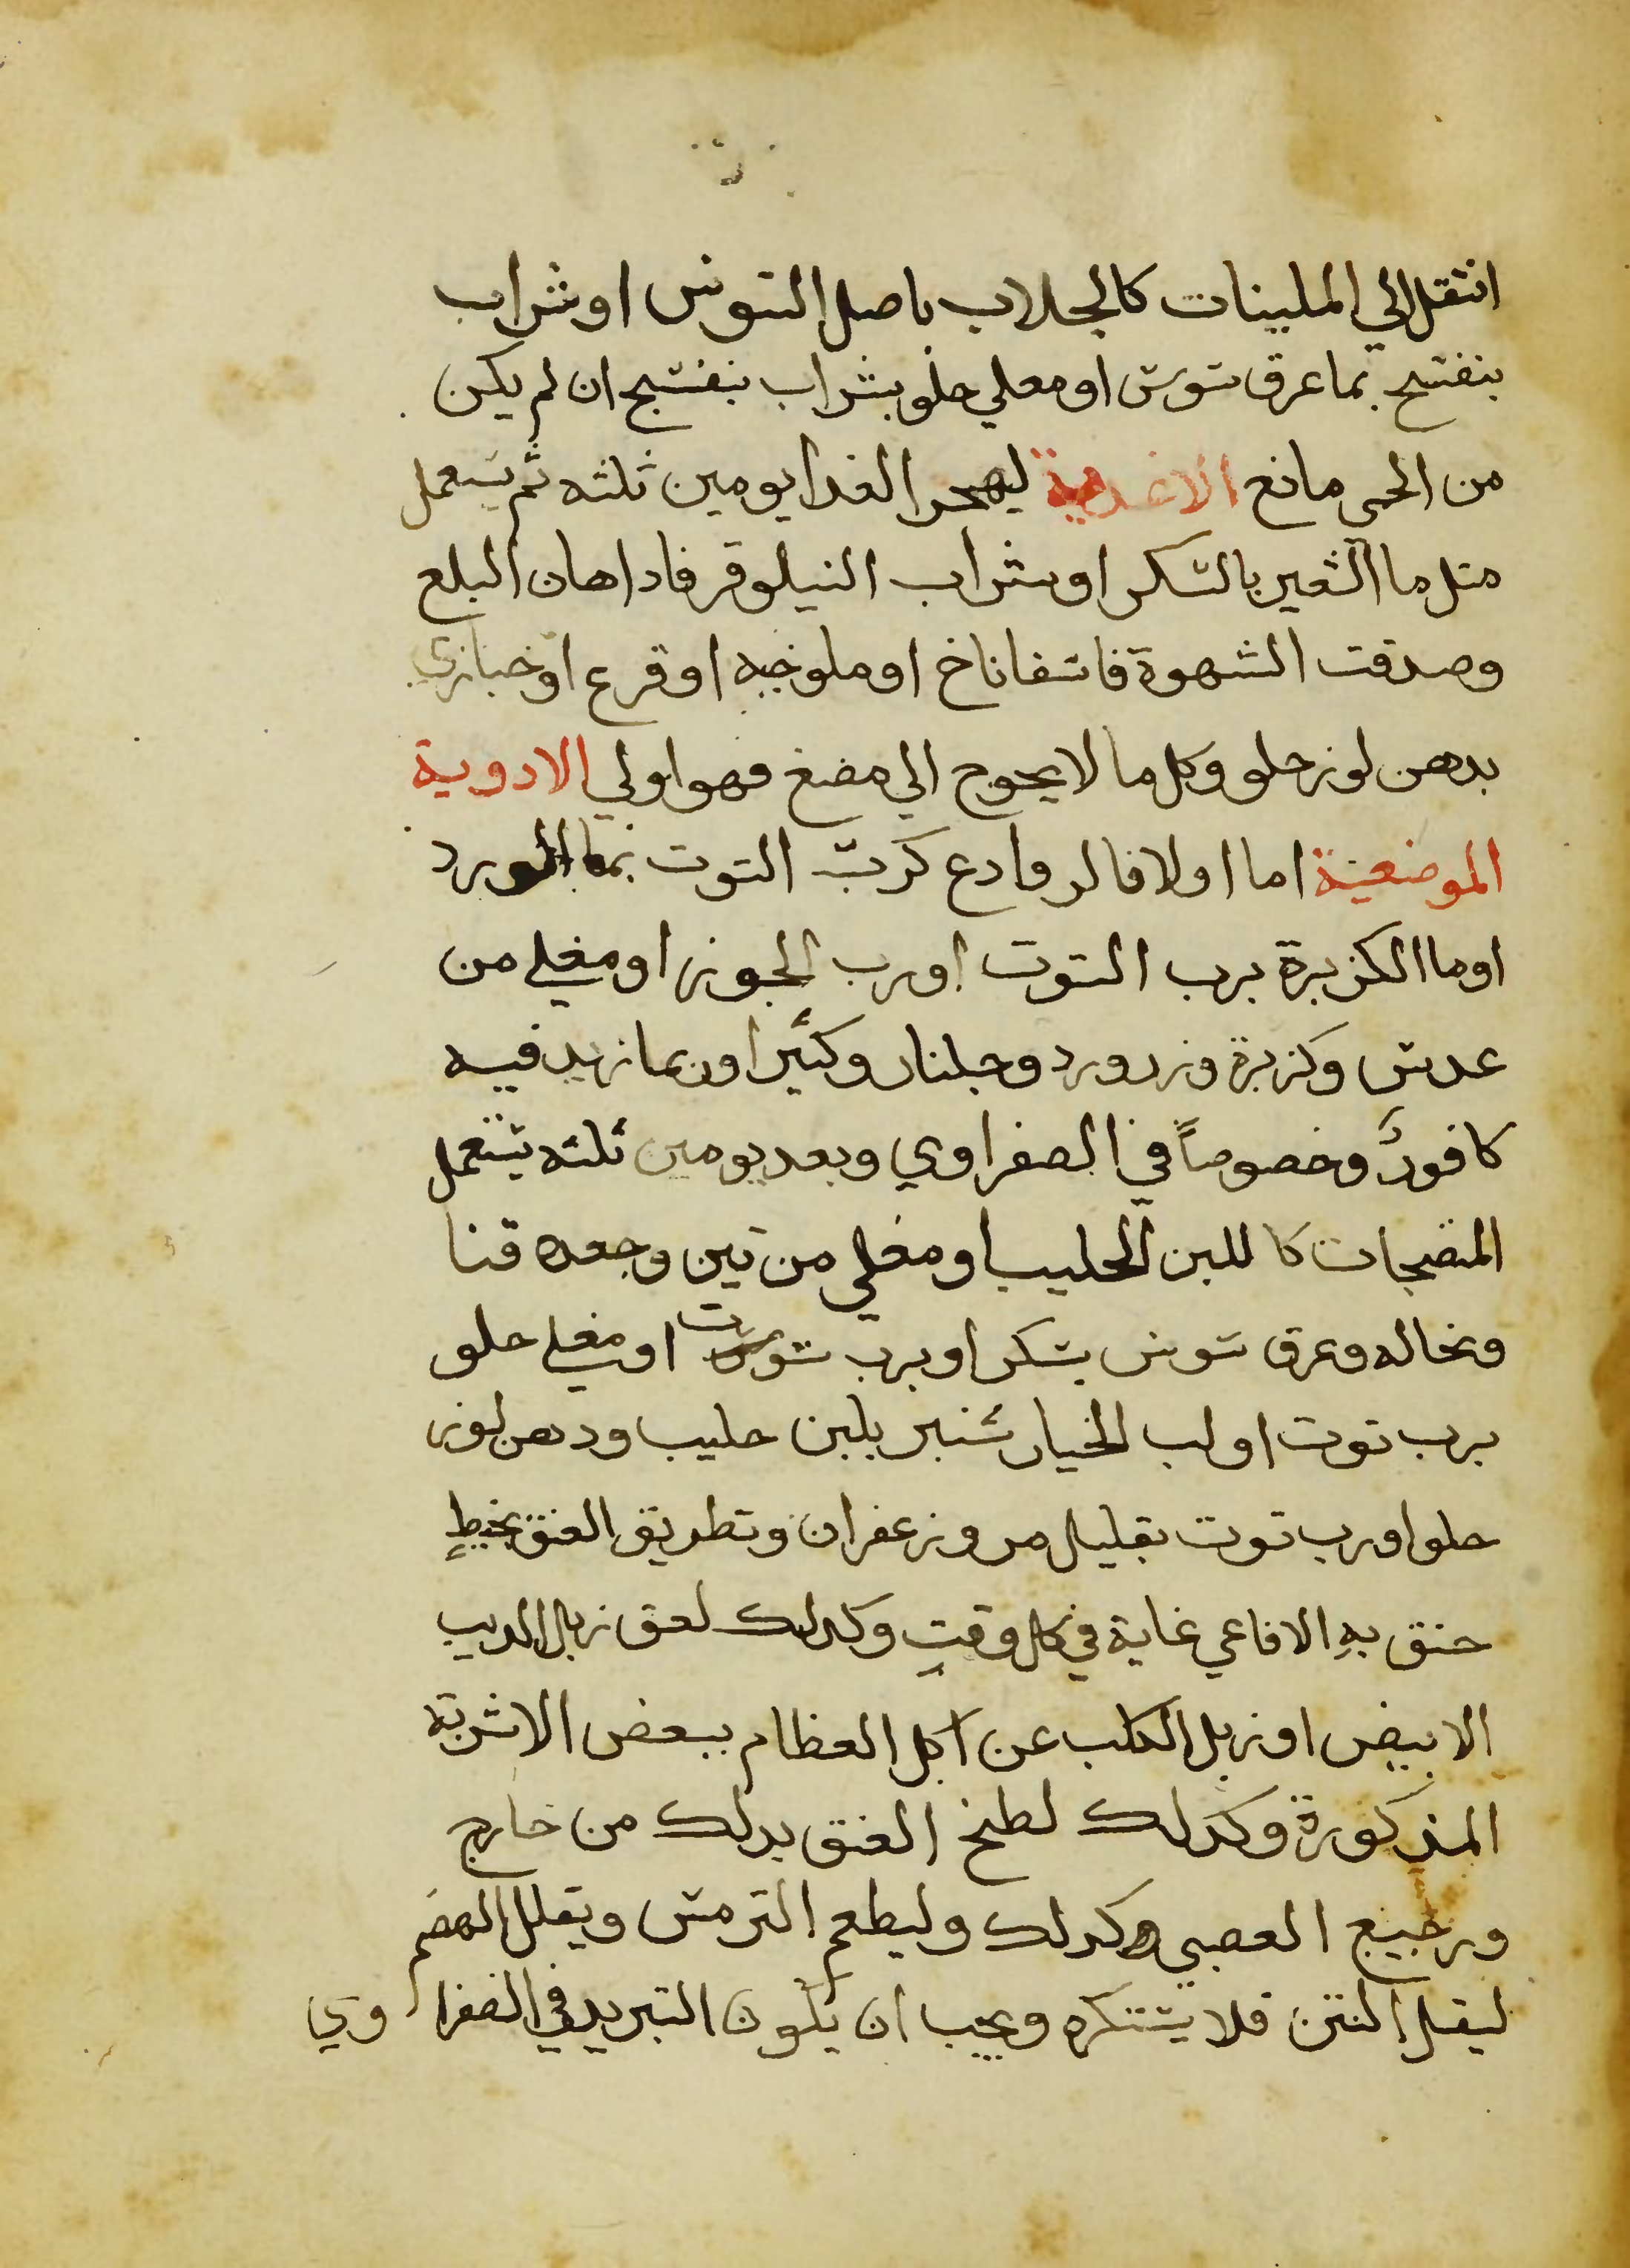 انتقل الي الملينات كالجلاب باصل السوس او شراب
بنفسج بما عرق سوس او مغلي حلو بشراب بنفسج ان لم يكن
من الحمى مانع الاغدية ليهجر الغدا يومين ثلثه ثم يستعمل
متل ما الشعير بالسكر او شراب النيلوفر فادا هان البلع
وصدقت الشهوة فاسفاناخ او ملوخيه او قرع او خبازي
بدهن لوز حلو وكل ما لا يحوج الي مضغ فهو اولي الادوية
الموضعية اما اولا فالروادع كرب التوت بما الورد
او ما الكزبرة برب التوت او رب الجوز او مغلي من
عدس وكزبرة وزر ورد وجلنار وكثيرا وربما زيد فيه
كافور وخصوصاً في الصفراوي وبعد يومين ثلثه يستعمل
المنضجات كاللبن الحليب او مغلي من تين وجعده قنا
ونخاله وعرق سوس بسكر او برب توت او مغلي حلو
برب توت او لب الخيار شنبر بلبن حليب ودهن لوز
حلو او رب توت بقليل مر وزعفران وتطويق العنق بخيطٍ
خنق بهِ الافاعي غاية في كل وقتٍ وكدلك لعق زبل الديب
الابيض او زبل الكلب عن اكل العظام ببعض الاشربة
المذكورة وكدلك لطخ العنق بدلك من خارج
ورجيع الصبي كدلك وليطعم الترمس ويقلل الهضم
ليقل النتن فلا يستكره ويجب ان يكون التبريد في الصفراوي